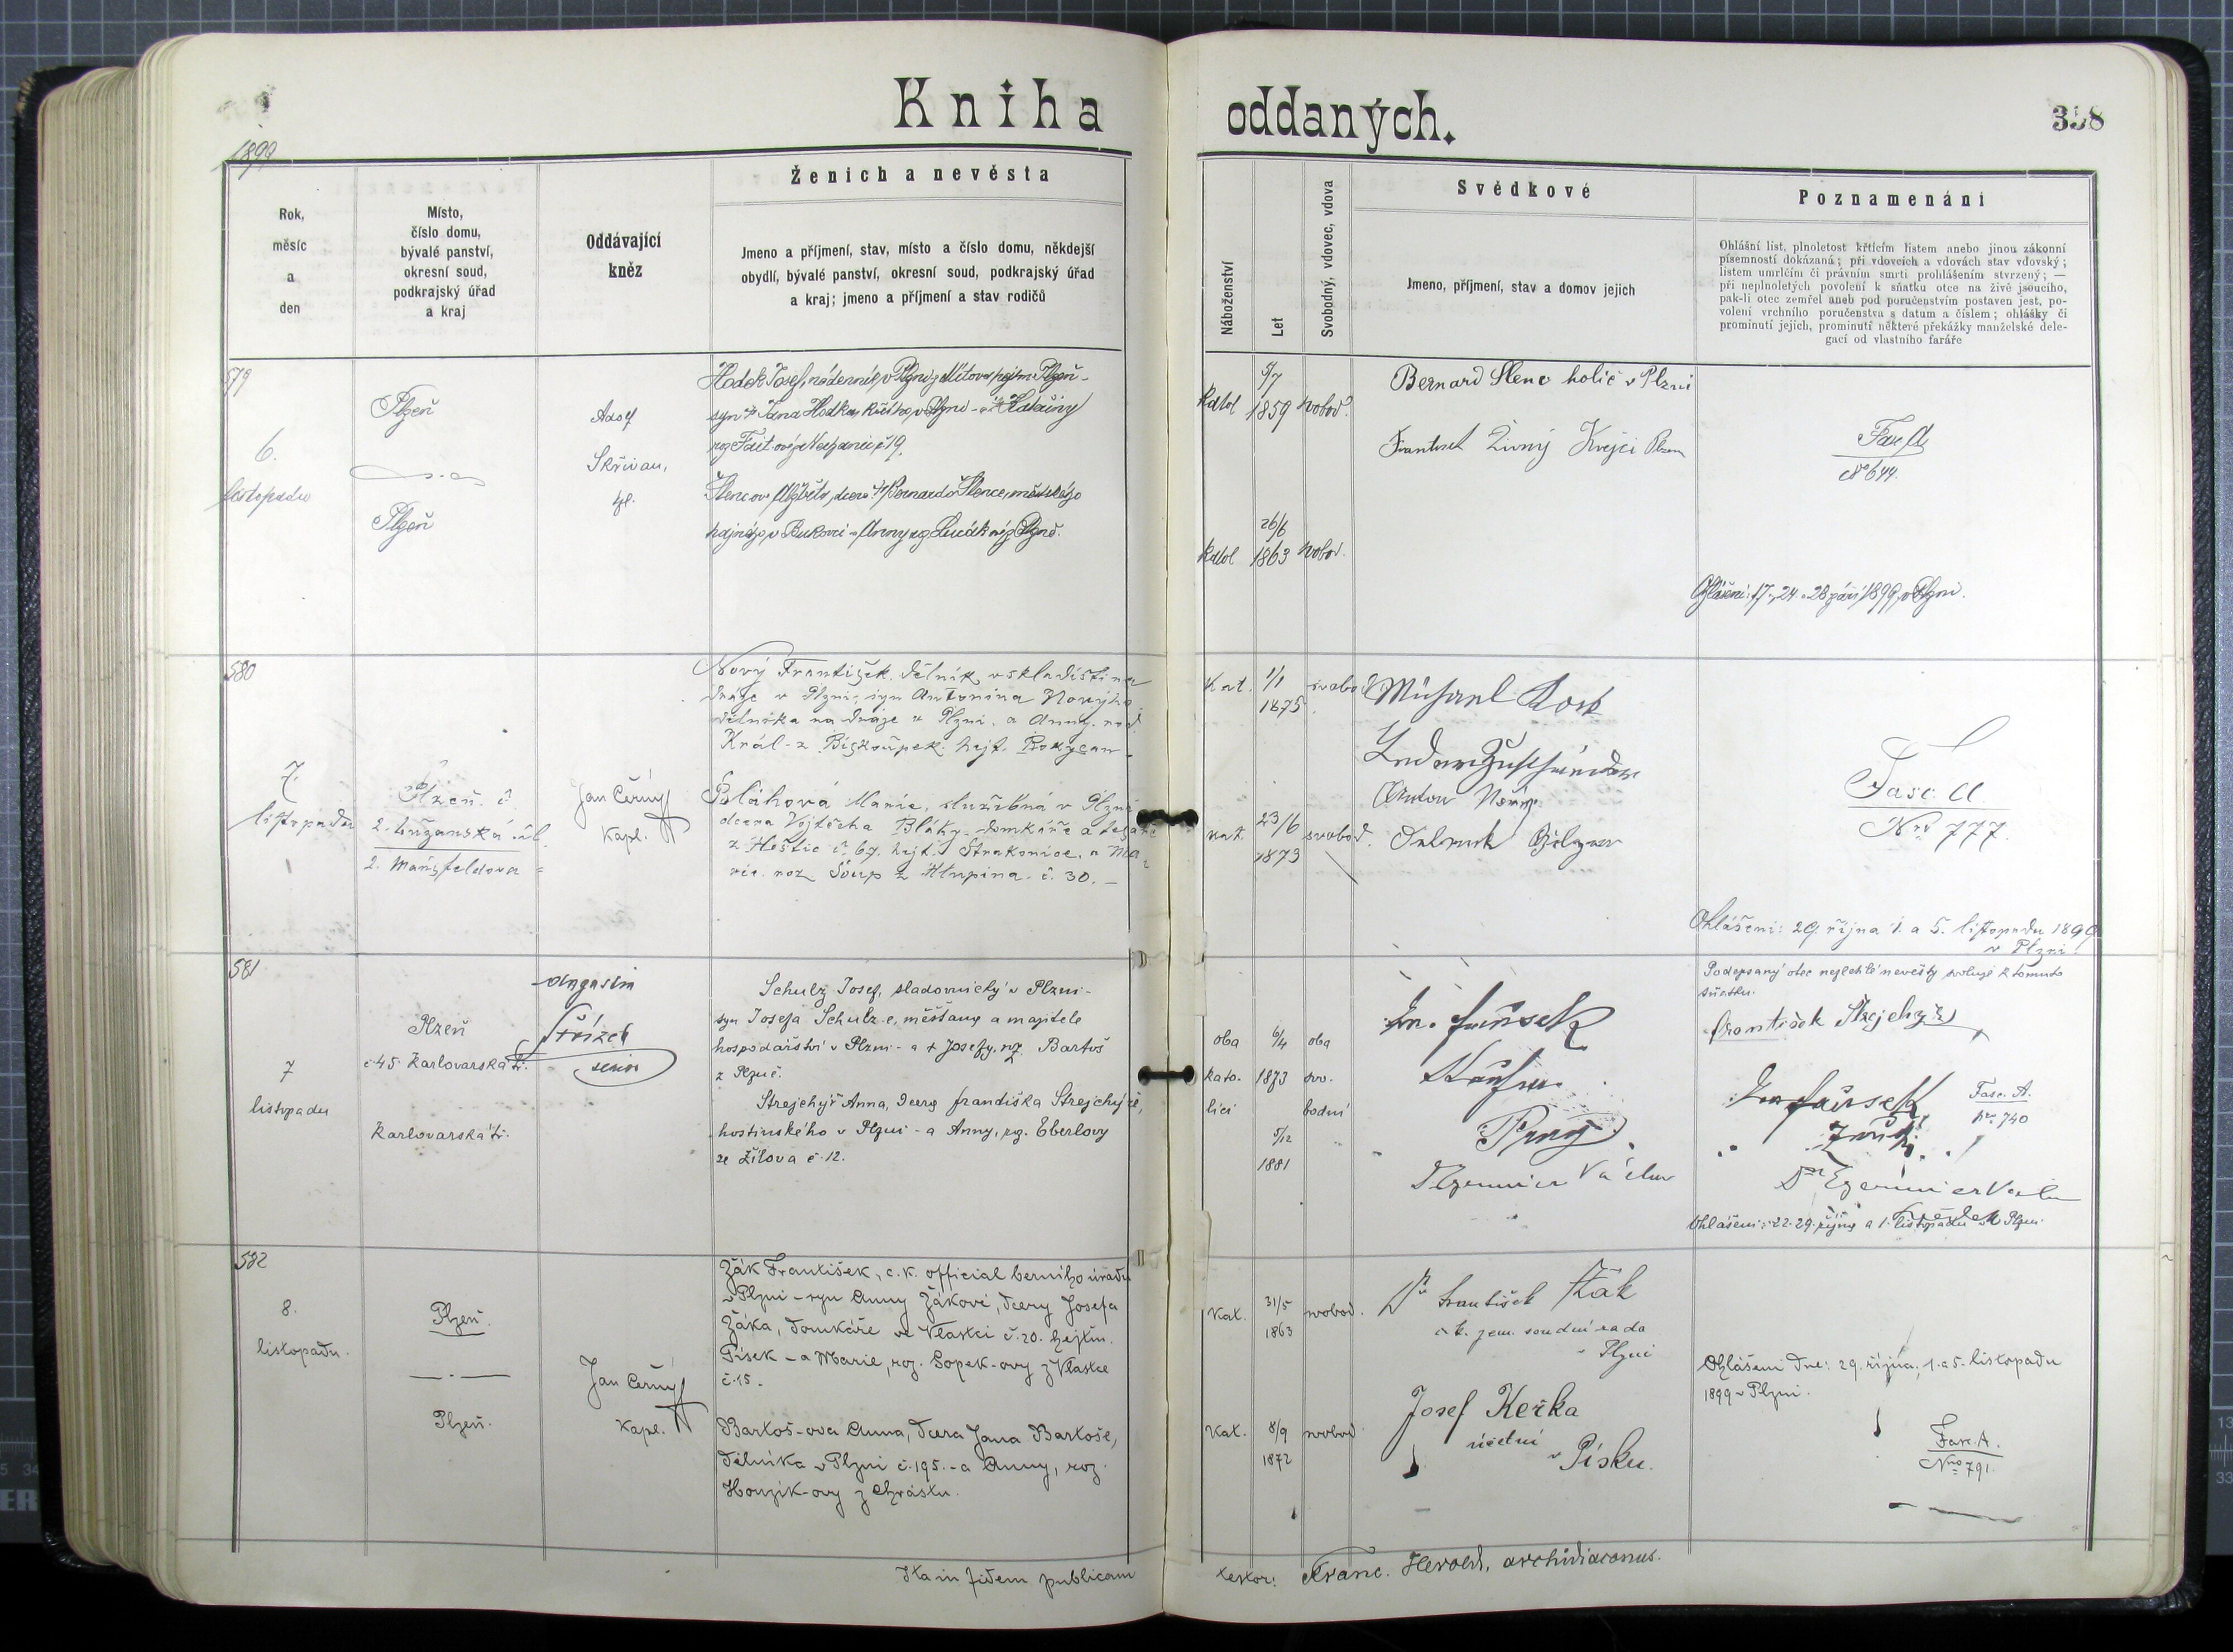 Kniha oddaných.
338
1899
Rok,
měsíc
a
den
Místo,
číslo domu,
bývalé panství,
okresní soud,
podkrajský úřad
a kraj
Oddávající
kněz
Ženich a nevěsta
Jmeno a příjmení, stav, místo a číslo domu, někdejší
obydlí, bývalé panství, okresní soud, podkrajský úřad
a kraj; jmeno a příjmení a stav rodičů
Náboženství
Let
Svobodný, vdovec, vdova
Svědkové
Jmeno, příjmení, stav a domov jejich
Poznamenání
Ohlášní list, plnoletost křticím listem anebo jinou zákonní
písemností dokázaná; při vdovcích a vdovách stav vdovský;
listem umrlčím či právním smrti prohlášením stvrzený; —
při neplnoletých povolení k sňatku otce na živě jsoucího,
pak-li otec zemřel aneb pod poručenstvím postaven jest, po-
volení vrchního poručenstva s datum a číslem; ohlášky či
prominutí jejich, prominutí některé překážky manželské dele-
gací od vlastního faráře
579
6.
listopadu
Plzeň
Plzeň
Adolf
Skřivan,
kpl.
Hodek Josef, nádenník v Plzni z Mítova hejtm. Plzeň -
syn Jana Hodka, v Plzni - a Kateřiny
roz. Fait-ové z č 19.
Šlencova Alžběta, dcera Bernarda Šlence, městského
hajného v Bukovci - a Anny roz. z Plzně.
Katol
5/7
1859
svobod.
Katol
26/6
1863
svobod.
Bernard Slenc holič v Plzni
František Živný Krejci Plzen
Fasc A
No 644.
Ohlášeni: 17., 24. a 28 září 1899 v Plzni.
580
7.
listopadu
Plzeň. č.
2. Lužanská ul.
2. Mansfeldova "
Jan Černý
Kapl.
Nový František dělník v skladišti na
dráze v Plzni, syn Antonína Nového
dělníka na dráze v Plzni. a Anny. rod.
Král - z Biskoupek. hejt. Rokycan -
Bláhová Marie, služebná v Plzni
dcera Vojtěcha Bláhy - domkáře a tesaře
z Hoštic č. 67. hejt. Strakonice. a Ma-
rie. roz. Soup z Hlupína. č. 30. -
Kat.
1/1
1875
svobod.
kat.
23/6
1873
svobod.
Anton Nový
Fasc. A
Nro 777.
Ohlášeni: 29. října 1. a 5. listopadu 1899
v Plzni.
581
7
listopadu
Plzeň
č 45 Karlovarská tř.
Karlovarská tř.
Augustin
Střízek
senior
Schulz Josef, sladovnický v Plzni -
syn Josefa Schulz-e, měšťana a majitele
hospodářství v Plzni - a + Josefy, roz. Bartoš
z Plzně.
Strejchýř Anna, dcera Františka Strejchýře,
hostinského v Plzni - a Anny, roz. Eberlovy
ze Žilova č. 12.
oba
kato-
líci
6/4
1873
5/12
1881
oba
svo-
bodní
"
Václav
Podepsaný otec nezletilé nevěsty svoluje k tomuto
sňatku.
František Strejchýř
Fasc. A.
Nro. 740
svědek
Ohlášeni: 22. 29. října a 1. listopadu v Plzni.
582
8.
listopadu.
Plzeň.
Plzeň.
Jan Černý
Kapl.
Žák František, c. k. official berního úřadu
v Plzni - syn Anny Žákové, dcery Josefa
Žáka, domkáře ve Vlastci č. 20. hejtm.
Písek - a Marie, roz. Sopek-ovy z Vlastce
č. 15.
Bartoš-ova Anna, dcera Jana Bartoše,
dělníka v Plzni č. 195. - a Anny, roz.
Houzik-ovy z Chrástu.
Kat.
31/5
1863
svobod.
Kat.
8/9
1872
svobod.
Dr František Žák
c. k. zem. soudní rada
v Plzni
Josef Keřka
účetní
v Písku.
Ohlášeni dne: 29. října, 1. a 5. listopadu
1899 v Plzni.
Fasc. A.
Nro 791.
Ita in fidem publicam testor: Franc. Herold, archidiaconus.